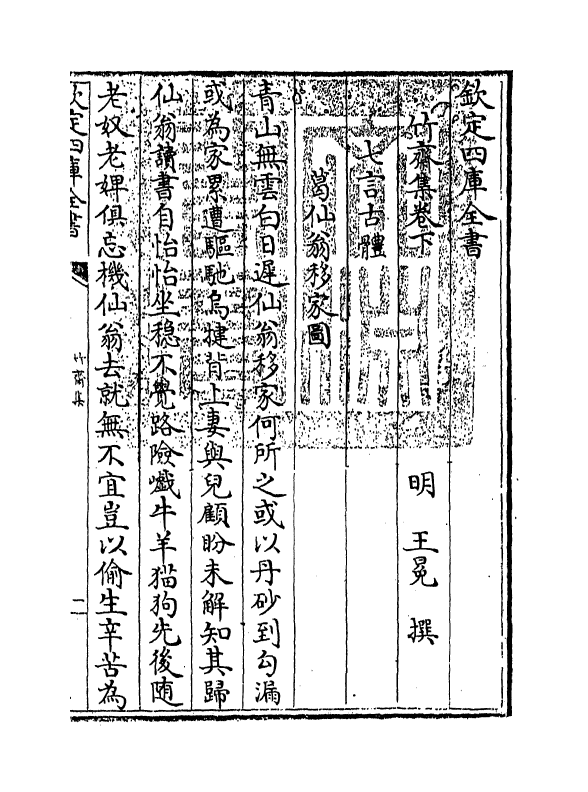 欽定四庫全書
竹齋集卷下
明　王冕　撰
七言古體
葛仙翁移家圖
青山無雲白日遲仙翁移家何所之或以丹砂到勾漏
或為家累遭驅馳烏犍背上妻與兒顧盼未解知其歸
仙翁讀書自怡怡坐穩不覺路險巇牛羊猫狗先後随
老奴老婢俱忘機仙翁去就無不宜豈以偷生辛苦為
欽定四庫全書
竹齋集
一